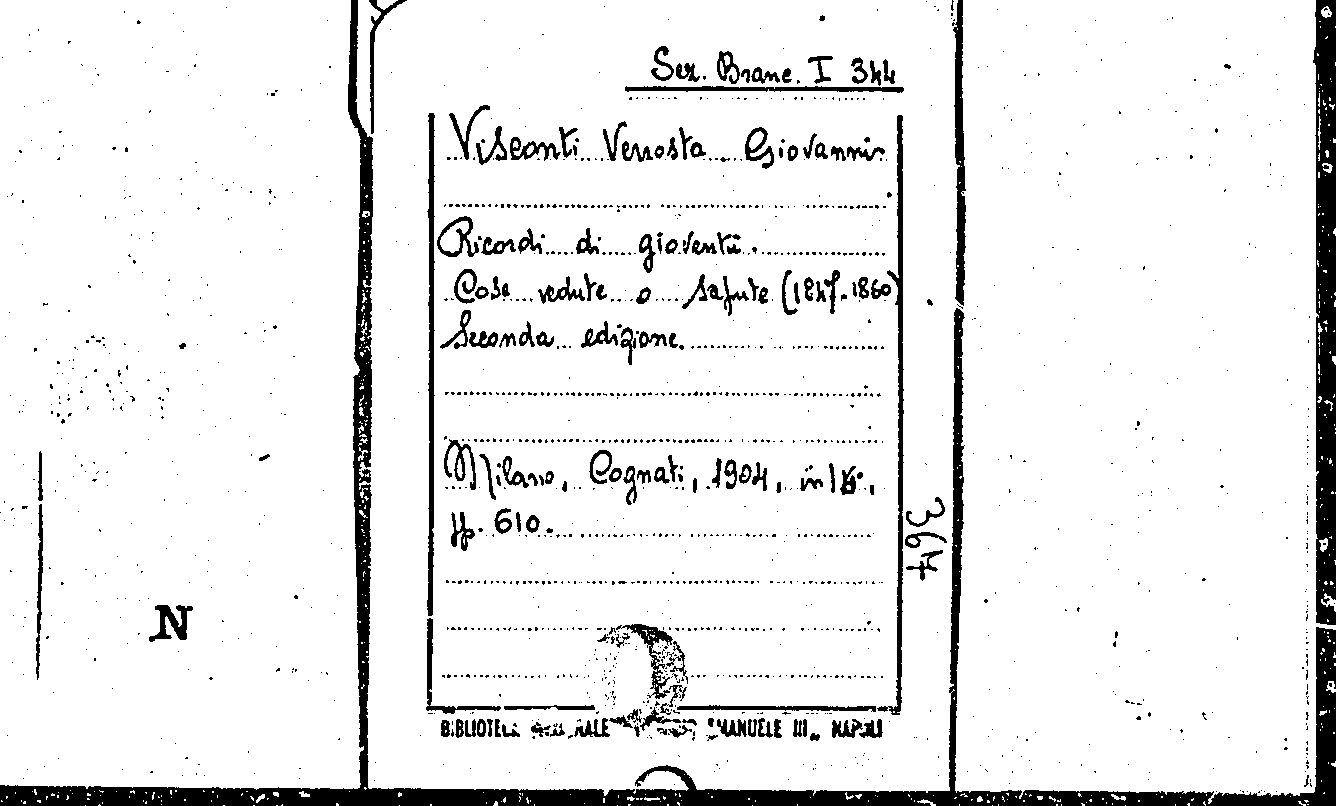 Sez. Branc. I 344
Visconti Venosta Giovanni
Ricordi di gioventù.
Cose vedute o sapute (1847-1860)
Seconda edizione.
Milano, Cognati, 1904, in 16°,
pp. 610.
364
N
BIBLIOTECA EMANUELE III„ NAPOLI